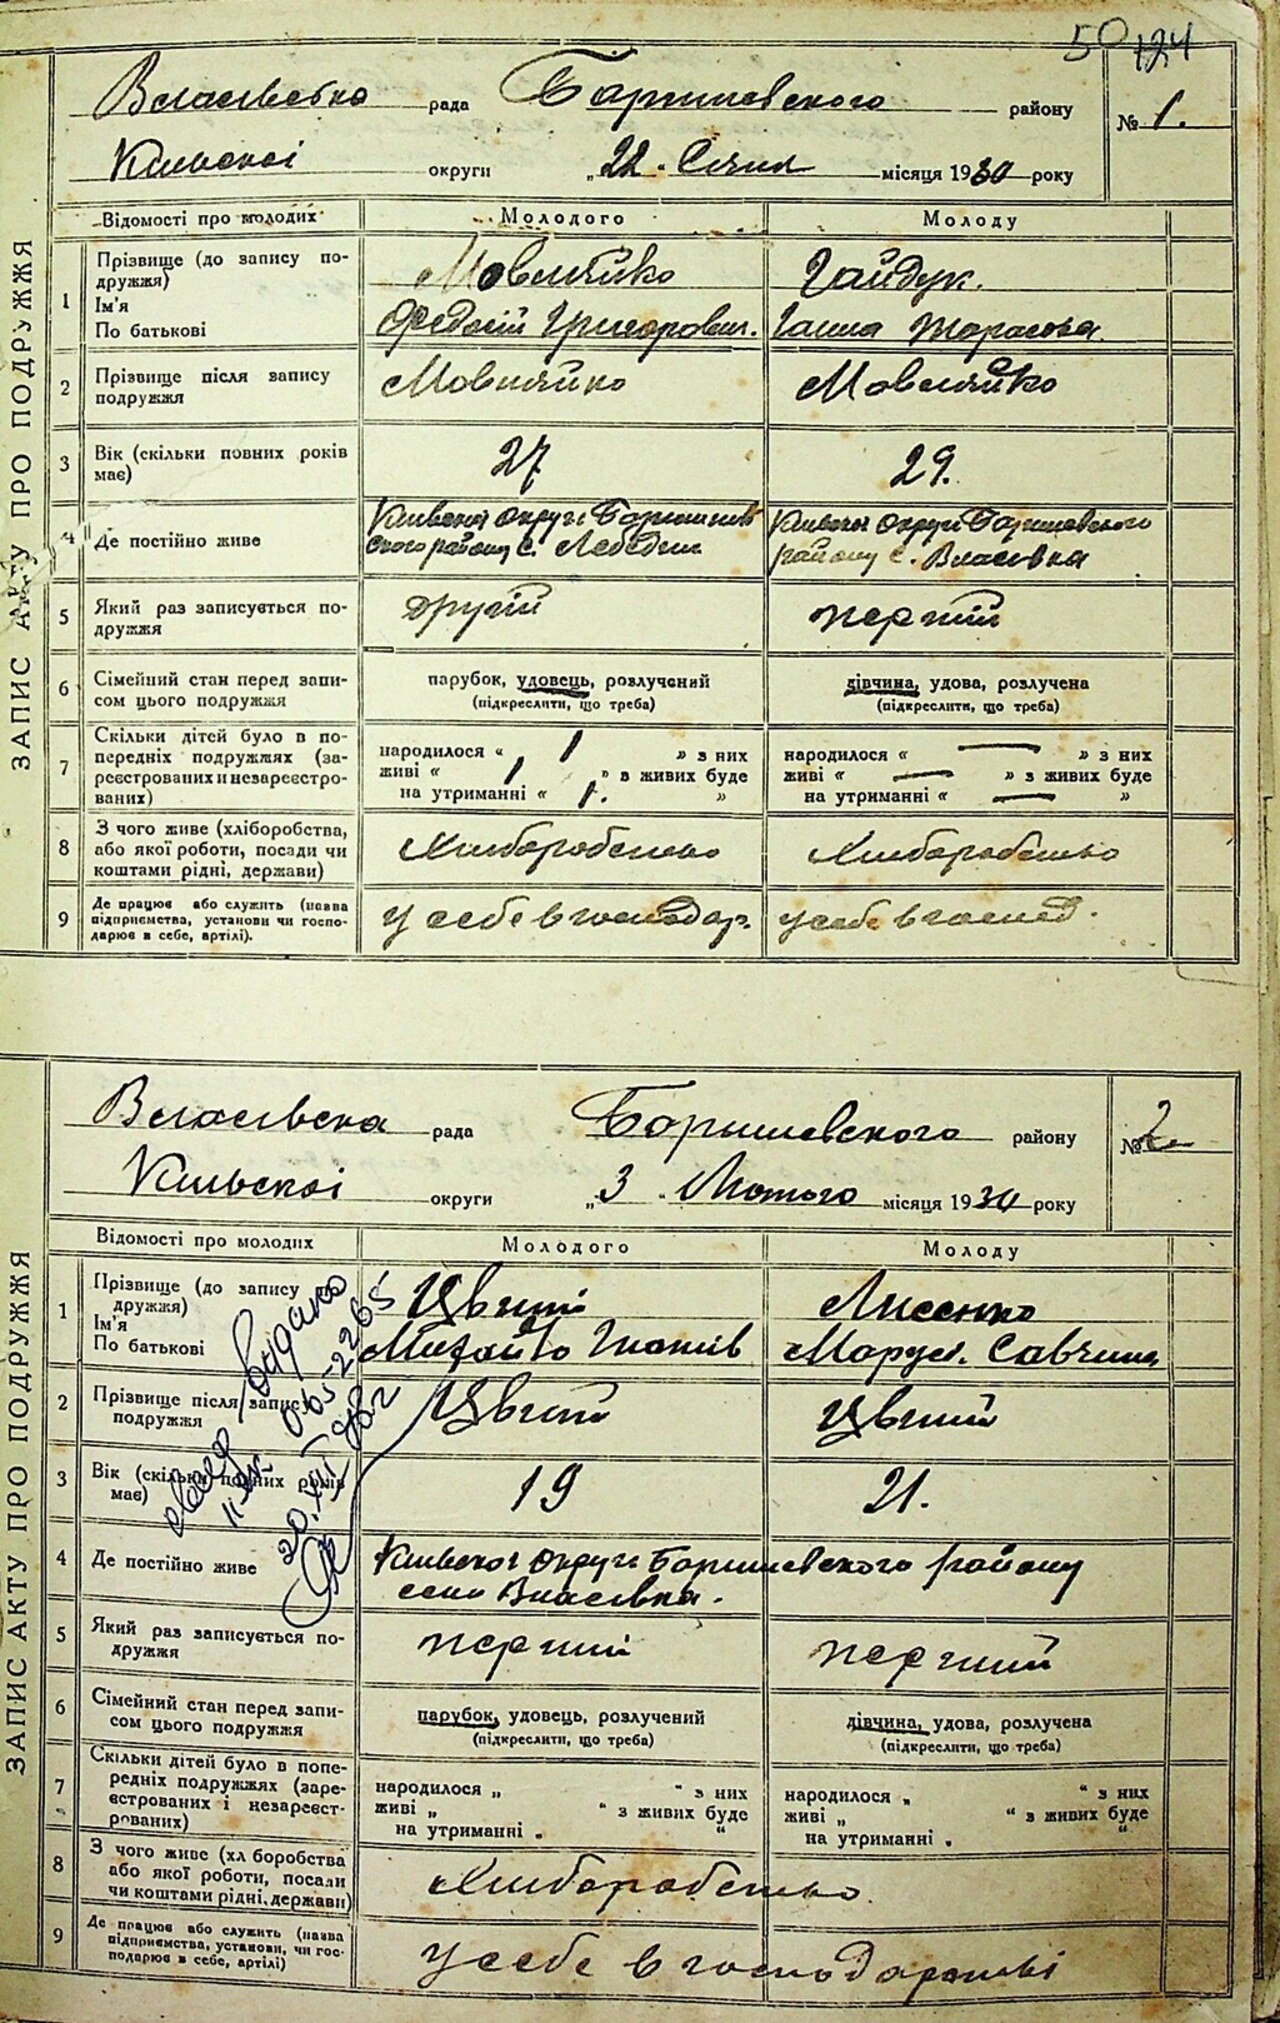 50 124
Власівська рада Баришевского району № 1.
Київскої округи „22" Січня місяця 1930 року
ЗАПИС АКТУ ПРО ПОДРУЖЖЯ
Відомості про молодих Молодого Молоду
1 Прізвище (до запису подружжя) Гайдук.
Ім'я
По батькові Федосій Григорович. Ганна Тарасовна.
2 Прізвище після запису
подружжя
3 Вік (скільки повних років 27 29.
має)
4 Де постійно живе Київскої округи Баришив Київскої округи Баришевского
ского району с. Лебедин району с. Власівка
5 Який раз записується по- другій перший
дружжя
6 Сімейний стан перед запи- парубок, удовець, розлучений дівчина, удова, розлучена
сом цього подружжя (підкреслити, що треба) (підкреслити, що треба)
7 Скільки дітей було в по-
передніх подружжях (за- народилося « 1 » з них народилося « — » з них
реєстрованих и незареєстро- живі « 1 » з живих буде живі « — » з живих буде
ваних) на утриманні « 1. » на утриманні « — »
8 З чого живе (хліборобства,
або якої роботи, посади чи Хліборобством Хліборобством
коштами рідні, держави)
9 Де працює або служить (назва
підприємства, установи чи госпо- у себе в господар. у себе в господ.
дарює в себе, артілі).
Власівска рада Баришевского району № 2
Київскої округи „3" Лютого місяця 1930 року
ЗАПИС АКТУ ПРО ПОДРУЖЖЯ
Відомості про молодих Молодого Молоду
1 Прізвище (до запису Цвгий Лисенко
дружжя)
Ім'я
По батькові Михайло Маруся Савчина
2 Прізвище після запису
подружжя
3 Вік (скільки повних років 19 21.
має)
4 Де постійно живе Київскої округи Баришевского району
село Власівка.
5 Який раз записується по- перший перший
дружжя
6 Сімейний стан перед запи- парубок, удовець, розлучений дівчина, удова, розлучена
сом цього подружжя (підкреслити, що треба) (підкреслити, що треба)
7 Скільки дітей було в попе-
редніх подружжях (заре- народилося „ " з них народилося „ " з них
єстрованих і незареєст- живі „ " з живих буде живі „ " з живих буде
рованих) на утриманні „ " на утриманні „ "
8 З чого живе (хл боробства
або якої роботи, посали Хліборобством
чи коштами рідні, держави)
9 Де працює або служить (назва
підприємства, установи, чи гос- у себе в господарстві
подарює в себе, артілі)